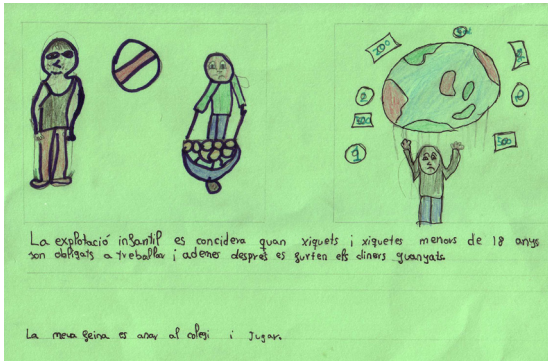 200
50
500
500
2
1
La explotació infantil es concidera quan xiquets i xiquetes menors de 18 anys
son obligats a treballar i ademes despres es furten els diners guanyats.
La meva feina es anar al colegi i jugar.